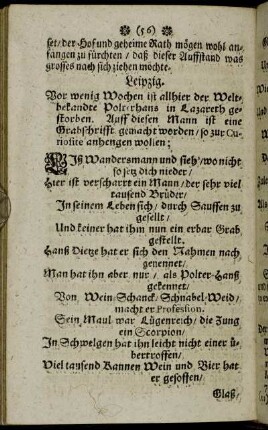 (56)
set/ der Hof und geheime Rath mögen wohl an-
fangen zu fürchten/ daß dieser Auffstand was
grosses nach sich ziehen möchte.
Leipzig.
Vor wenig Wochen ist allhier der Welt-
bekandte Polterhans in Lazareth ge-
storben. Auff diesen Mann ist eine
Grabschrifft gemacht worden/ so zur Cu-
riosite anhengen wollen;
Liß Wandersmann und sieh/ wo nicht
so setz dich nieder/
Hier ist verscharrt ein Mann/ der sehr viel
tausend Brüder/
In seinem Leben sich/ durch Sauffen zu
gesellt/
Und keiner hat ihm nun ein erbar Grab
gestellt.
Hanß Dietze hat er sich den Nahmen nach
genennet/
Man hat ihn aber nur/ als Polter-Hanß
gekennet/
Von Wein-Schanck/ Schnabel-Weid/
macht er Profession.
Sein Maul war Lügenreich/ die Zung
ein Scorpion/
In Schwelgen hat ihn leicht nicht einer ü-
bertroffen/
Viel tausend Kannen Wein und Bier hat
er gesoffen/
Glaß/